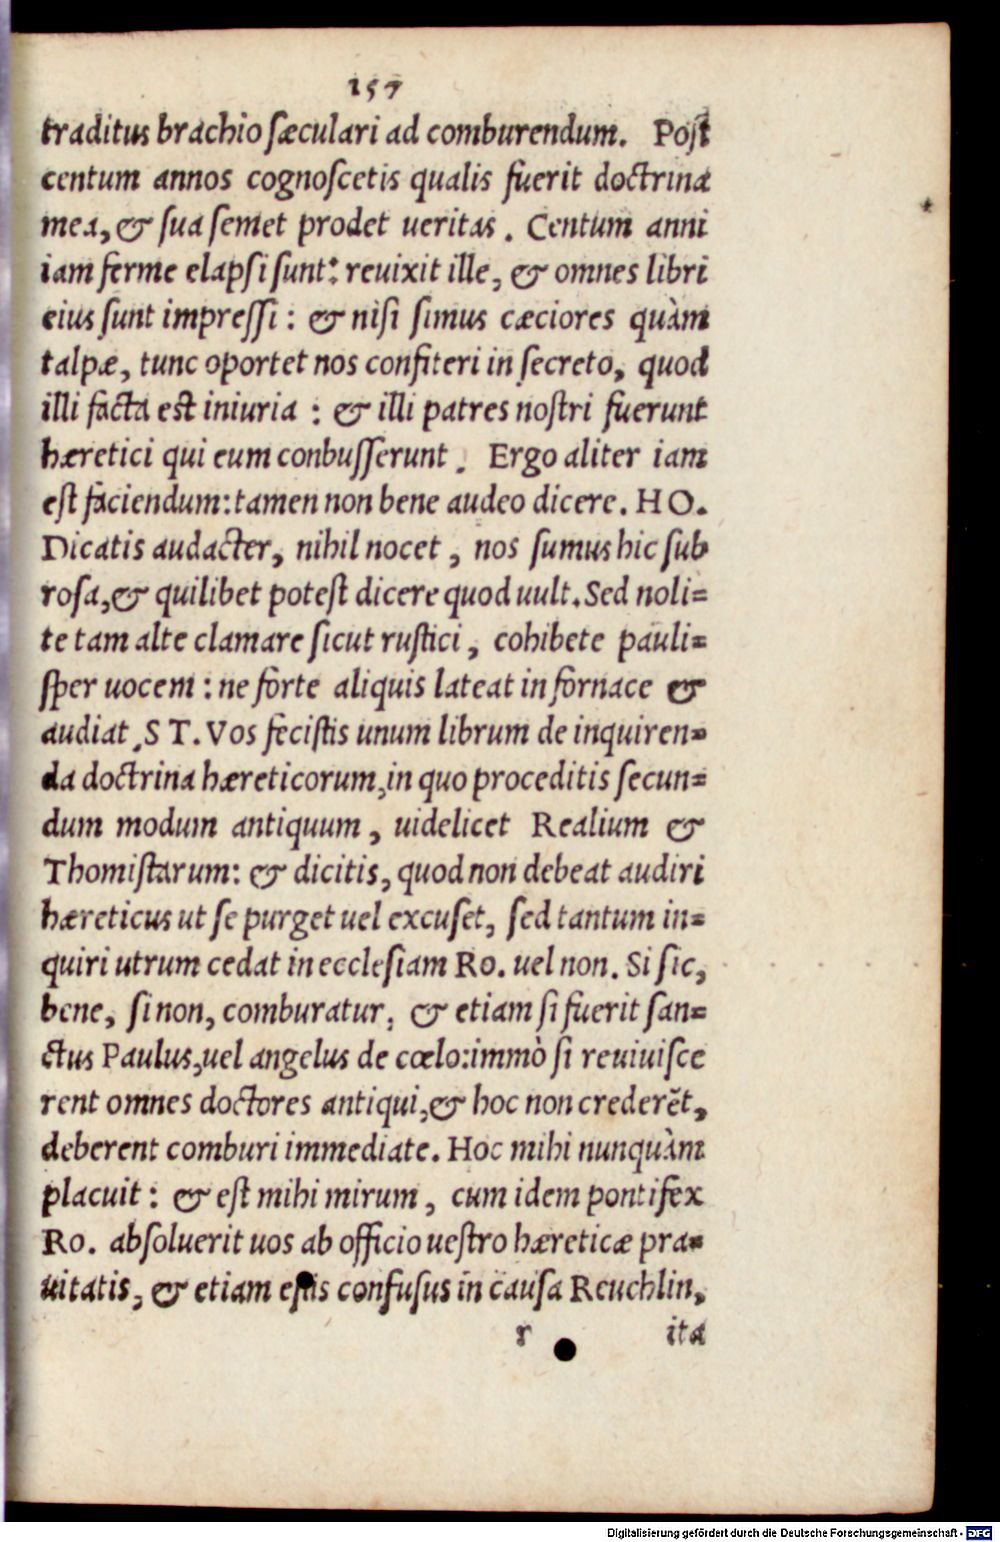 157
traditus brachio sæculari ad comburendum. Post
centum annos cognoscetis qualis fuerit doctrina
mea, & sua semet prodet ueritas. Centum anni
iam ferme elapsi sunt: reuixit ille, & omnes libri
eius sunt impressi: & nisi simus cæciores quàm
talpæ, tunc oportet nos confiteri in secreto, quod
illi facta est iniuria: & illi patres nostri fuerunt
hæretici qui eum conbusserunt. Ergo aliter iam
est faciendum: tamen non bene audeo dicere. HO.
Dicatis audacter, nihil nocet, nos sumus hic sub
rosa, & quilibet potest dicere quod uult. Sed noli=
te tam alte clamare sicut rustici, cohibete pauli=
sper uocem: ne forte aliquis lateat in fornace &
audiat. ST. Vos fecistis unum librum de inquiren=
da doctrina hæreticorum, in quo proceditis secun=
dum modum antiquum, uidelicet Realium &
Thomistarum: & dicitis, quod non debeat audiri
hæreticus ut se purget uel excuset, sed tantum in=
quiri utrum cedat in ecclesiam Ro. uel non. Si sic,
bene, si non, comburatur, & etiam si fuerit san=
ctus Paulus, uel angelus de cœlo: immò si reuiuisce
rent omnes doctores antiqui, & hoc non crederẽt,
deberent comburi immediate. Hoc mihi nunquàm
placuit: & est mihi mirum, cum idem pontifex
Ro. absoluerit uos ab officio uestro hæreticæ pra=
uitatis, & etiam estis confusus in causa Reuchlin,
r ita
Digitalisierung gefördert durch die Deutsche Forschungsgemeinschaft - DFG